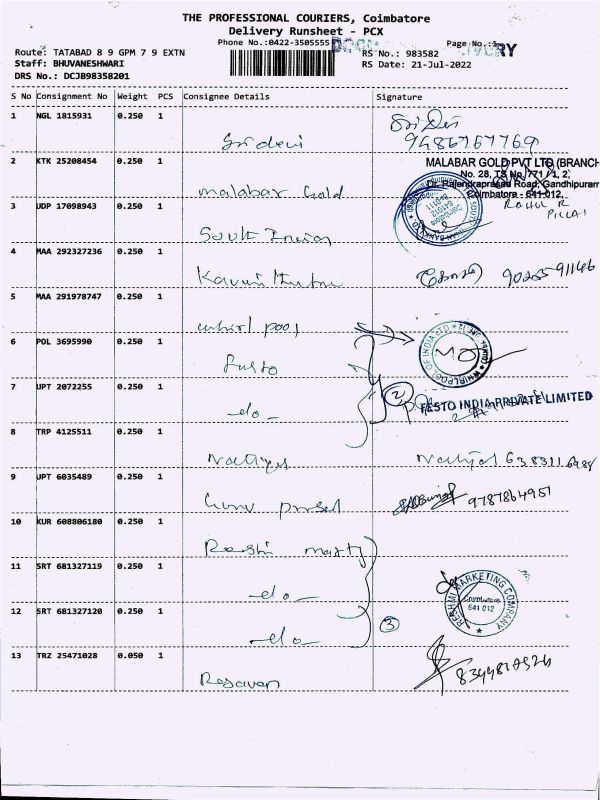 THE PROFESSIONAL COURIERS, Coimbatore
Delivery Runsheet - PCX
Phone No.:0422-3505555
Page No.:
Route: TATABAD 8 9 GPM 7 9 EXTN
RS No.: 983582
Staff: BHUVANESHWARI
RS Date: 21-Jul-2022
DRS No.: DCJB98358201
S No Consignment No Weight PCS Consignee Details Signature
1 NGL 1815931 0.250 1
Sri devi
9486767769
2 KTK 25208454 0.250 1
MALABAR GOLD PVT LTD (BRANCH
No. 28, TS No. 771/1, 2,
Dr. Rajendraprasad Road, Gandhipuram
Coimbatore - 641 012.
malabar Gold
3 UDP 17098943 0.250 1
RAHUL R
PILLAI
South Indian
4 MAA 292327236 0.250 1
5 MAA 291978747 0.250 1
whirl pool
6 POL 3695990 0.250 1
WHIRLPOOL OF INDIA LTD
festo
7 JPT 2072255 0.250 1
2
FESTO INDIA PRIVATE LIMITED
-do-
8 TRP 4125511 0.250 1
9 JPT 6035489 0.250 1
9787864951
10 KUR 608806180 0.250 1
11 SRT 681327119 0.250 1
-do-
RESHMI MARKETING COMPANY
Coimbatore
641 012
12 SRT 681327120 0.250 1
3
-do-
13 TRZ 25471028 0.050 1